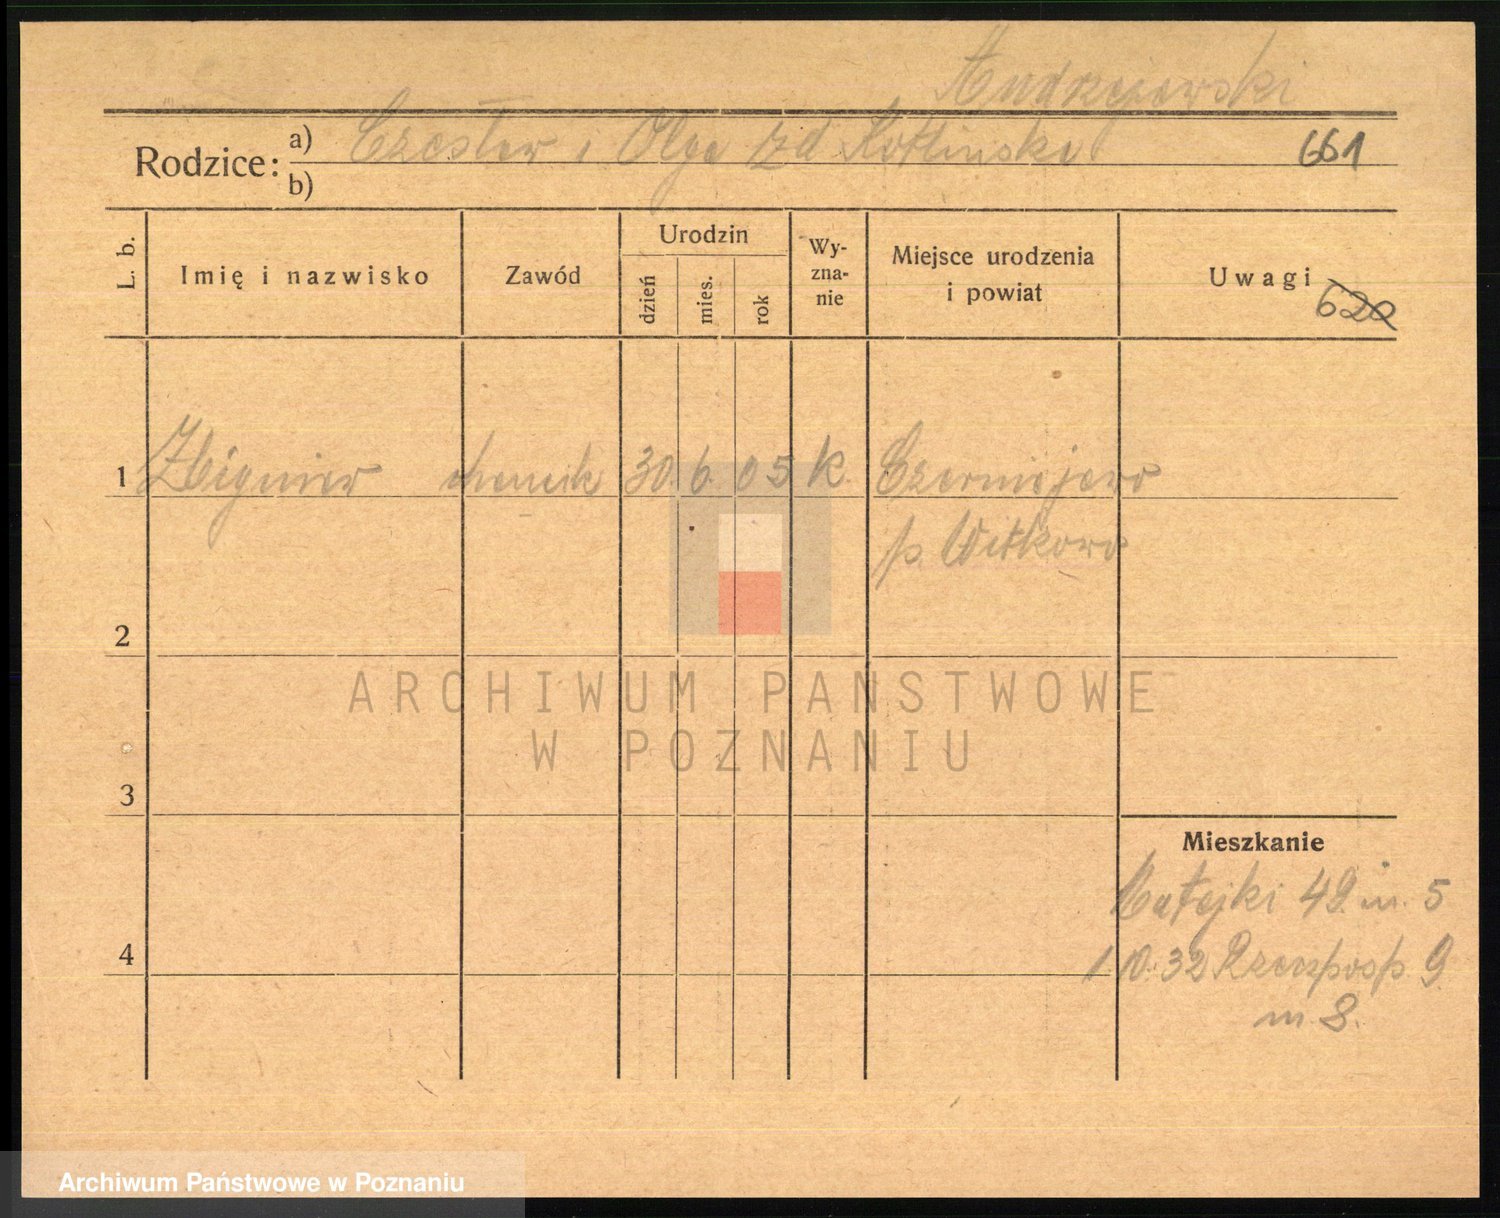 Andrzejewski
Rodzice: a) Czesław i Olga zd Kotlińska 661
b)
L. b. Imię i nazwisko Zawód Urodzin dzień mies. rok Wy-zna-nie Miejsce urodzenia i powiat Uwagi 620
1 Zbigniew chemik 30. 6. 05 K. Czerniejewo
p. Witkowo
2
ARCHIWUM PAŃSTWOWE
W POZNANIU
3
Mieszkanie
Matejki 49 m. 5
4 1.10.32 Rzeczposp. 9
m 8.
Archiwum Państwowe w Poznaniu